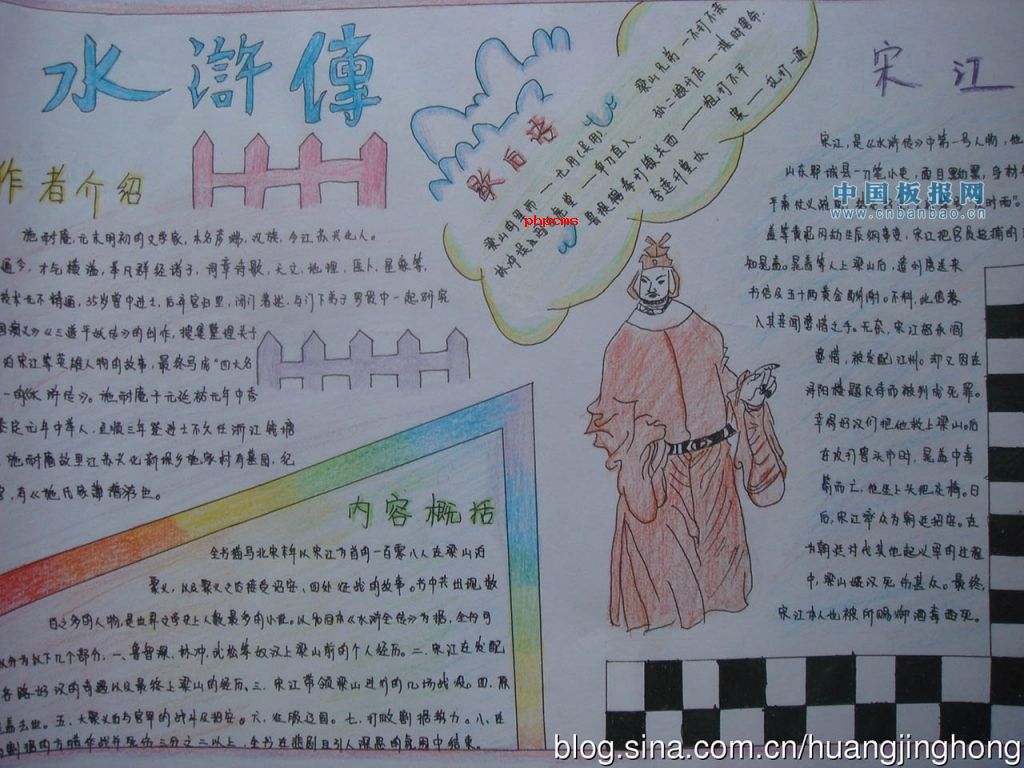 水浒傳
作者介绍
施耐庵,元末明初的文学家,本名彦端,汉族,今江苏兴化人。
通今,才气横溢,举凡群经诸子,词章诗歌,天文,地理,医卜,星象等,
技术无不精通,35岁曾中进士,后弃官归里,闭门著述,与门下弟子罗贯中一起研究
《三遂平妖传》的创作,搜集整理关于
宋江等英雄人物的故事,最终写成"四大名
一的《水浒传》。施耐庵于元延祐元年中秀
元年中举人,至顺三年登进士不久任浙江钱塘
施耐庵故里江苏兴化新垛乡施家村有墓园,纪
有《施氏家簿谱》
内容概括
全书描写北宋末年以宋江为首的一百零八人在梁山泊
聚义,以及聚义之后接受招安、四处征战的故事。书中共出现数
百之多的人物,是世界文学史上人数最多的小说。以如百本《水浒全传》为据,全书可
以分为以下几个部分,一、鲁智深、林冲、武松等好汉上梁山前的个人经历。二、宋江在发配
各路好汉的奇遇以及最终上梁山的经历、三、宋江带领梁山进行的几场战役,四、原
盖去世。五、大聚义后与官军的战斗及招安。六、征服辽国。七、打败割据势力。八、在
割据的方腊作战并死伤三分之二以上,全书在悲剧且引人深思的氛围中结束。
歇后语
梁山的军师——无用(吴用)
梁山兄弟——不打不亲
孙二娘开店——谋财害命
林冲误
单刀直入
鲁提辖拳打镇关西——抱打不平
李逵升堂
phpcms
宋江
宋江,是《水浒传》中第一号人物,他
山东郓城县一刀笔小吏,面目黝黑,身材
中国板报网
www.cnbanbao.cn
盖等黄泥冈劫生辰纲事竟,宋江把官兵追捕的
知晁盖,晁盖等人上梁山后,遣刘唐送来
书信及五十两黄金酬谢。不料,此信落
入其妾阎婆惜之手。无奈,宋江怒杀阎
婆惜,被发配江州。却又因在
浔阳楼题反诗而被判成死罪。
幸得好汉们把他救上梁山。后
在攻打曾头市时,晁盖中毒
箭而亡,他坐上头把交椅。日
后,宋江带众为朝廷招安。在
为朝廷讨伐其他起义军的过程
中,梁山好汉死伤甚众。最终,
宋江本人也被所赐御酒毒毒死。
blog.sina.com.cn/huangjinghong